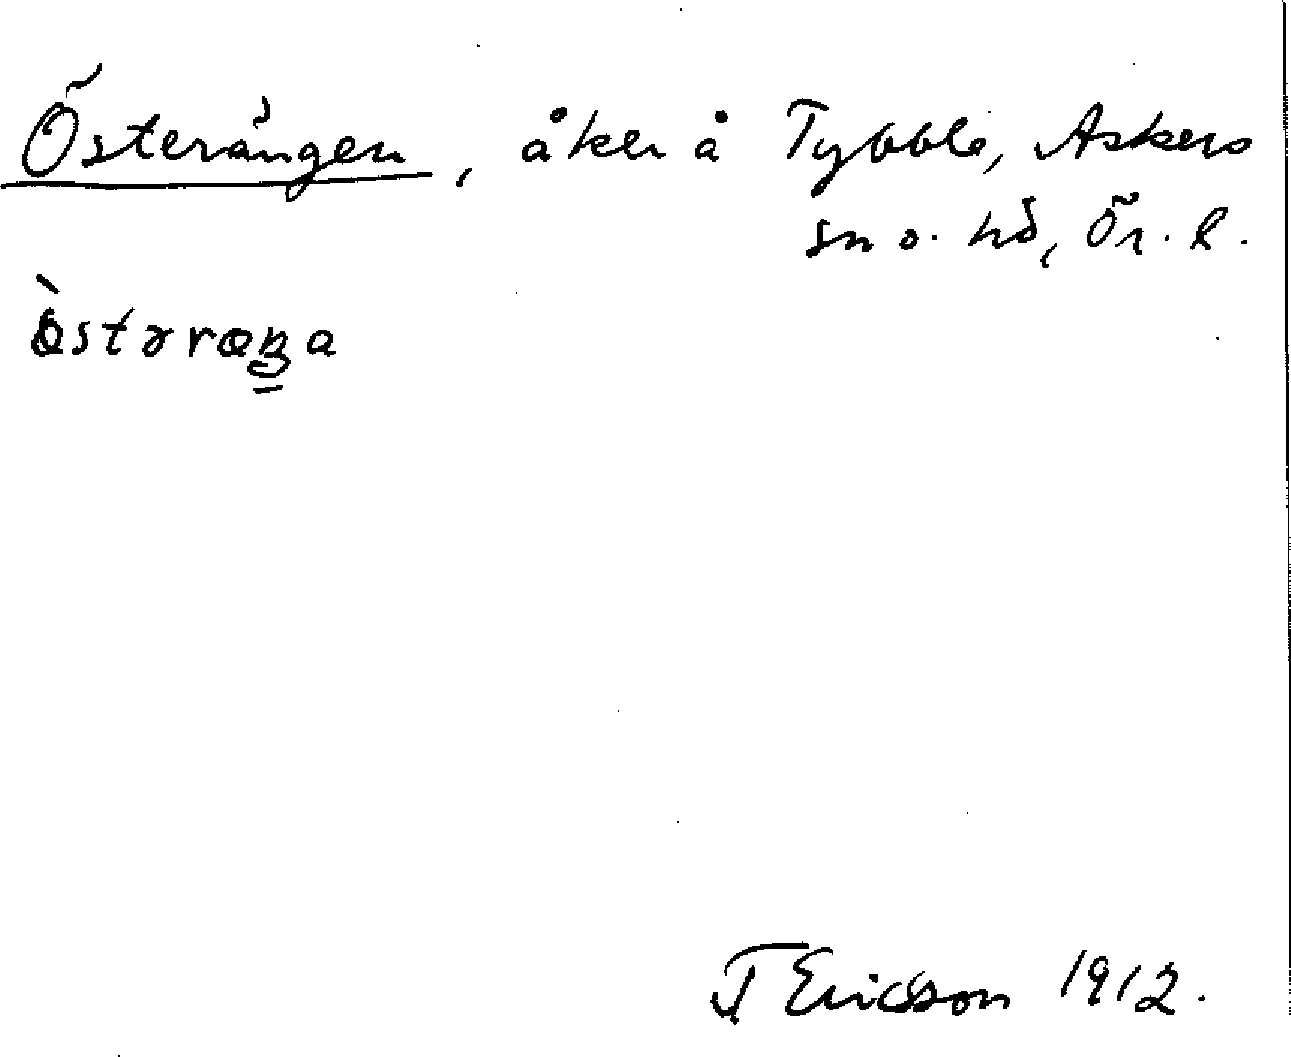 Österängen, åker å Tybble, Askers
sn o. hd, Ör. l.
T Ericsson 1912.